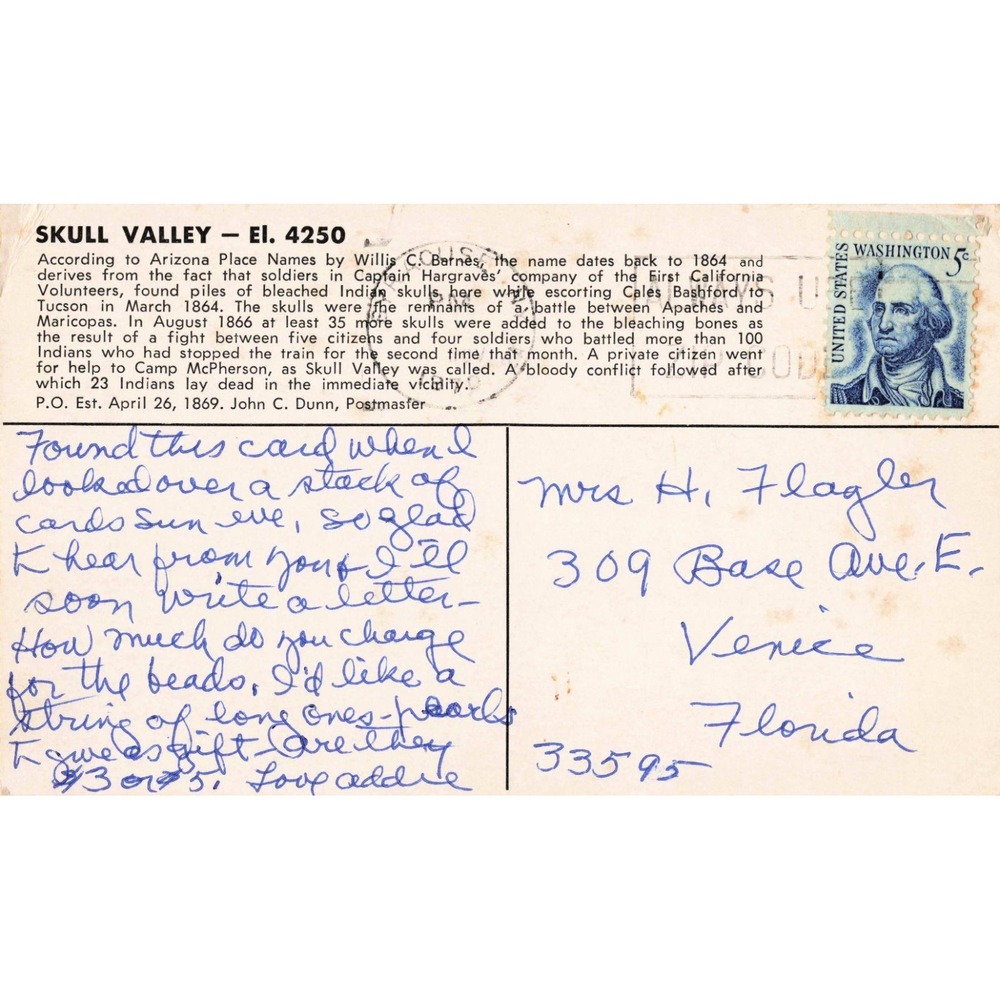 SKULL VALLEY — El. 4250
According to Arizona Place Names by Willis C. Barnes, the name dates back to 1864 and
derives from the fact that soldiers in Captain Hargraves' company of the First California
Volunteers, found piles of bleached Indian skulls here while escorting Cales Bashford to
Tucson in March 1864. The skulls were the remnants of a battle between Apaches and
Maricopas. In August 1866 at least 35 more skulls were added to the bleaching bones as
the result of a fight between five citizens and four soldiers who battled more than 100
Indians who had stopped the train for the second time that month. A private citizen went
for help to Camp McPherson, as Skull Valley was called. A bloody conflict followed after
which 23 Indians lay dead in the immediate vicinity.
P.O. Est. April 26, 1869. John C. Dunn, Postmaster
ALWAYS U
ZIP CODE
UNITED STATES
WASHINGTON 5c
Found this card when I
looked over a stack of
cards Sun eve, so glad
to hear from you & I'll
soon write a letter—
How much do you charge
for the beads, I'd like a
string of long ones—pearls
to give as gift—are they
$3 or $5. Love Addie
Mrs H. Flagler
309 Base Ave. E.
Venice
Florida
33595